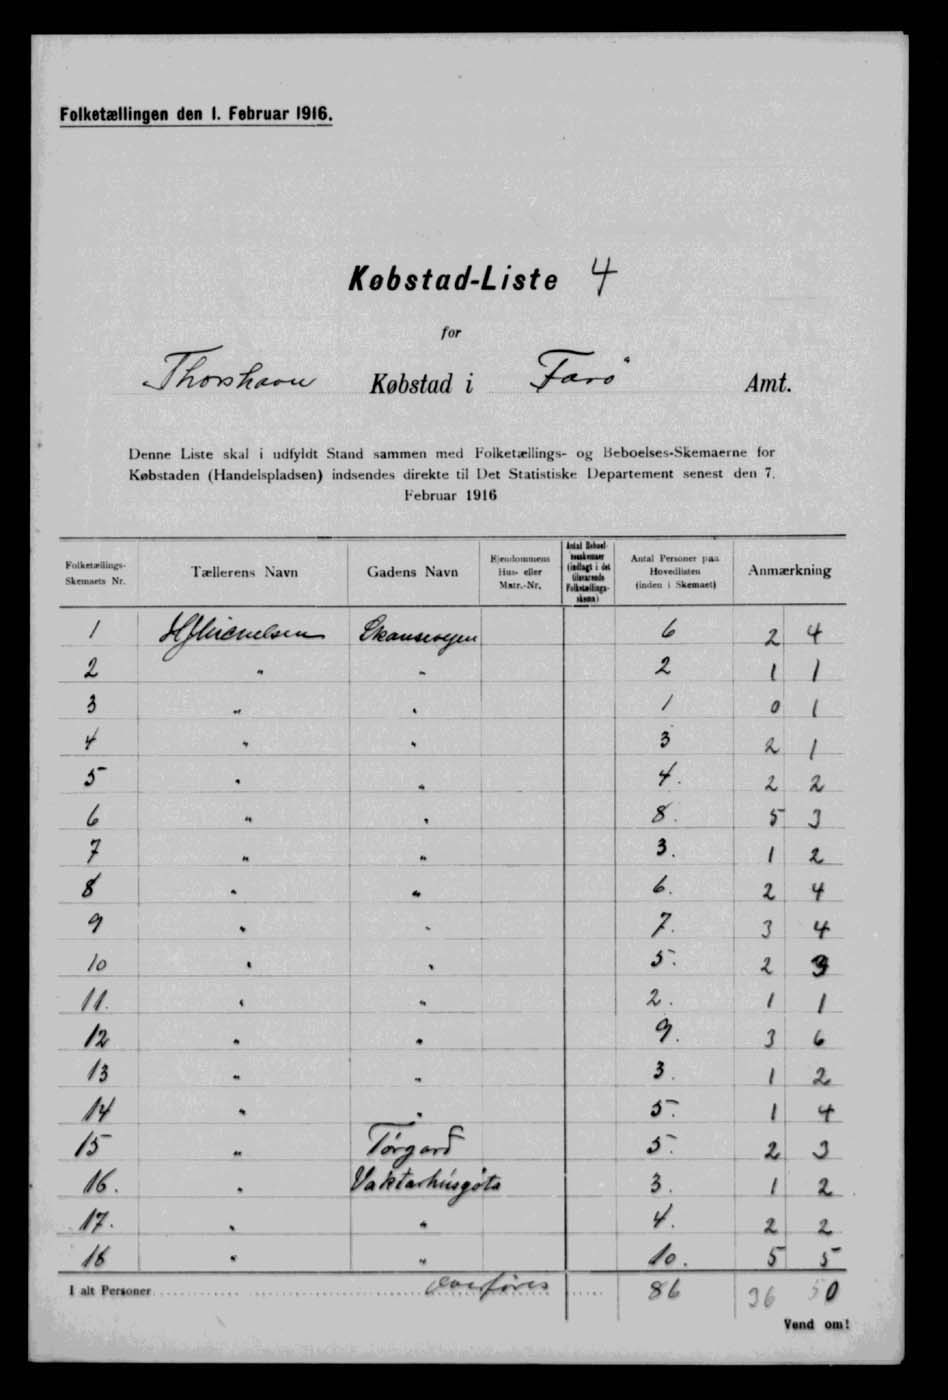 Folketællingen den 1. Februar 1916.
Købstad-Liste 4
for
Thorshavn Købstad i Farö Amt.
Denne Liste skal i udfyldt Stand sammen med Folketællings- og Beboelses-Skemaerne for
Købstaden (Handelspladsen) indsendes direkte til Det Statistiske Departement senest den 7.
Februar 1916
Folketællings-Skemaets Nr. Tællerens Navn Gadens Navn Ejendommens Hus- eller Matr.-Nr. Antal Beboelsesskemaer (indlagt i det tilsvarende Folketællingsskema) Antal Personer paa Hovedlisten (inden i Skemaet) Anmærkning
1 Skansevejen 6 2 4
2 " " 2 1 1
3 " " 1 0 1
4 " " 3 2 1
5 " " 4. 2 2
6 " " 8. 5 3
7 " " 3. 1 2
8 " " 6. 2 4
9 " " 7. 3 4
10 " " 5. 2 3
11. " " 2. 1 1
12 " " 9. 3 6
13 " " 3. 1 2
14 " " 5. 1 4
15 " Tórgard 5. 2 3
16. " Vaktarhúsgöta 3. 1 2
17. " " 4. 2 2
18 " " 10. 5 5
I alt Personer overføres 86 36 50
Vend om!